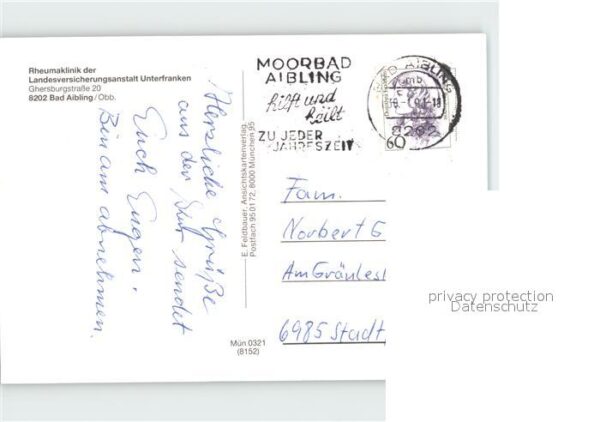 Rheumaklinik der
Landesversicherungsanstalt Unterfranken
Ghersburgstraße 20
8202 Bad Aibling/Obb.
MOORBAD
AIBLING
hilft und
heilt
ZU JEDER
JAHRESZEIT
BAD AIBLING
8202
60
Herzliche Grüße
aus der Kur sendet
Euch Eugen.
Bin am abnehmen.
E. Feldbauer, Ansichtskartenverlag
Postfach 950172, 8000 München 95
Mün 0321
(8152)
Fam.
Norbert G
Am Gräules
6985 Stadt
privacy protection
Datenschutz